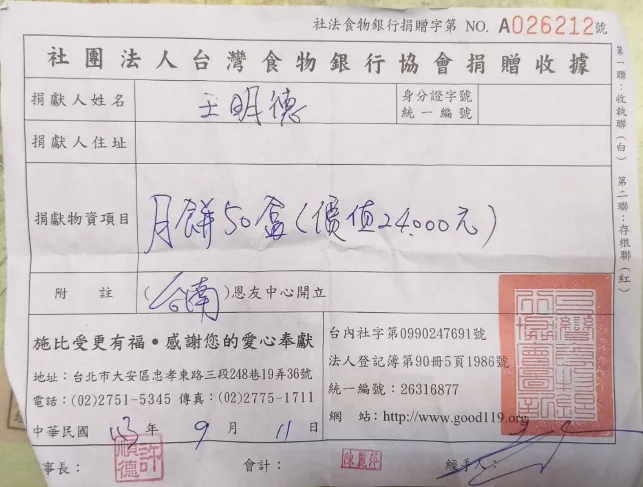 社法食物銀行捐贈字第 NO. A026212號
社團法人台灣食物銀行協會捐贈收據
捐獻人姓名 王明德 身分證字號 統一編號
捐獻人住址
捐獻物資項目 月餅50盒(價值24,000元)
附註 (台南)恩友中心開立
施比受更有福•感謝您的愛心奉獻
地址:台北市大安區忠孝東路三段248巷19弄36號
電話:(02)2751-5345 傳真:(02)2775-1711
中華民國 113 年 9 月 11 日
台內社字第0990247691號
法人登記簿第90冊5頁1986號
統一編號:26316877
網 站:http://www.good119.org
事長: 許順德 會計: 經手人:
第一聯:收執聯(白) 第二聯:存根聯(紅)